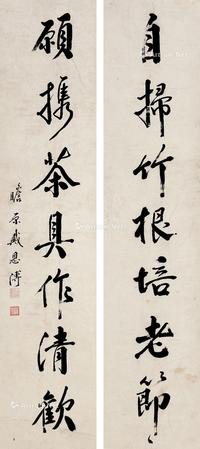 自掃竹根培老節
願攜茶具作清歡
瞻原戴恩溥